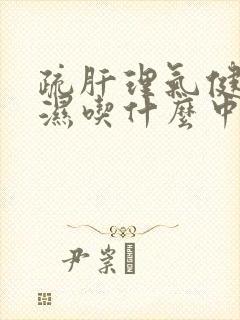 疏肝理氣健
濕喫什麼中
尹崇